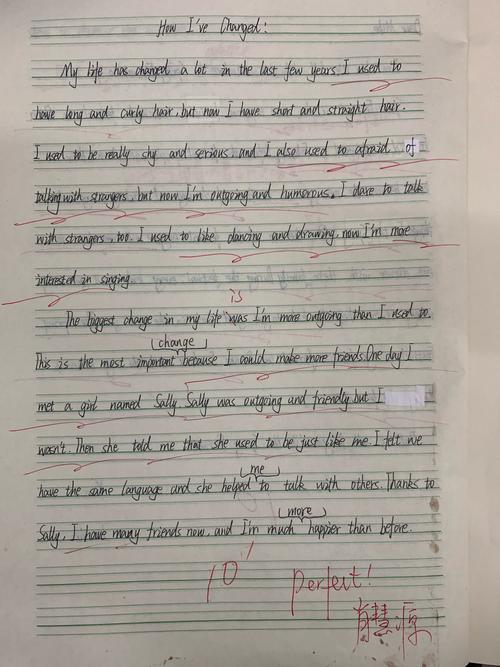 How I've Changed:
My life has changed a lot in the last few years. I used to
have long and curly hair, but now I have short and straight hair.
I used to be really shy and serious, and I also used to afraid of
talking with strangers, but now I'm outgoing and humorous. I dare to talk
with strangers, too. I used to like dancing and drawing, now I'm more
interested in singing.
is
The biggest change in my life was I'm more outgoing than I used to.
change
This is the most important because I could make more friends. One day I
met a girl named Sally. Sally was outgoing and friendly but I
wasn't. Then she told me that she used to be just like me. I felt we
me
have the same language and she helped to talk with others. Thanks to
more
Sally, I have many friends now, and I'm much happier than before.
10'
perfect!